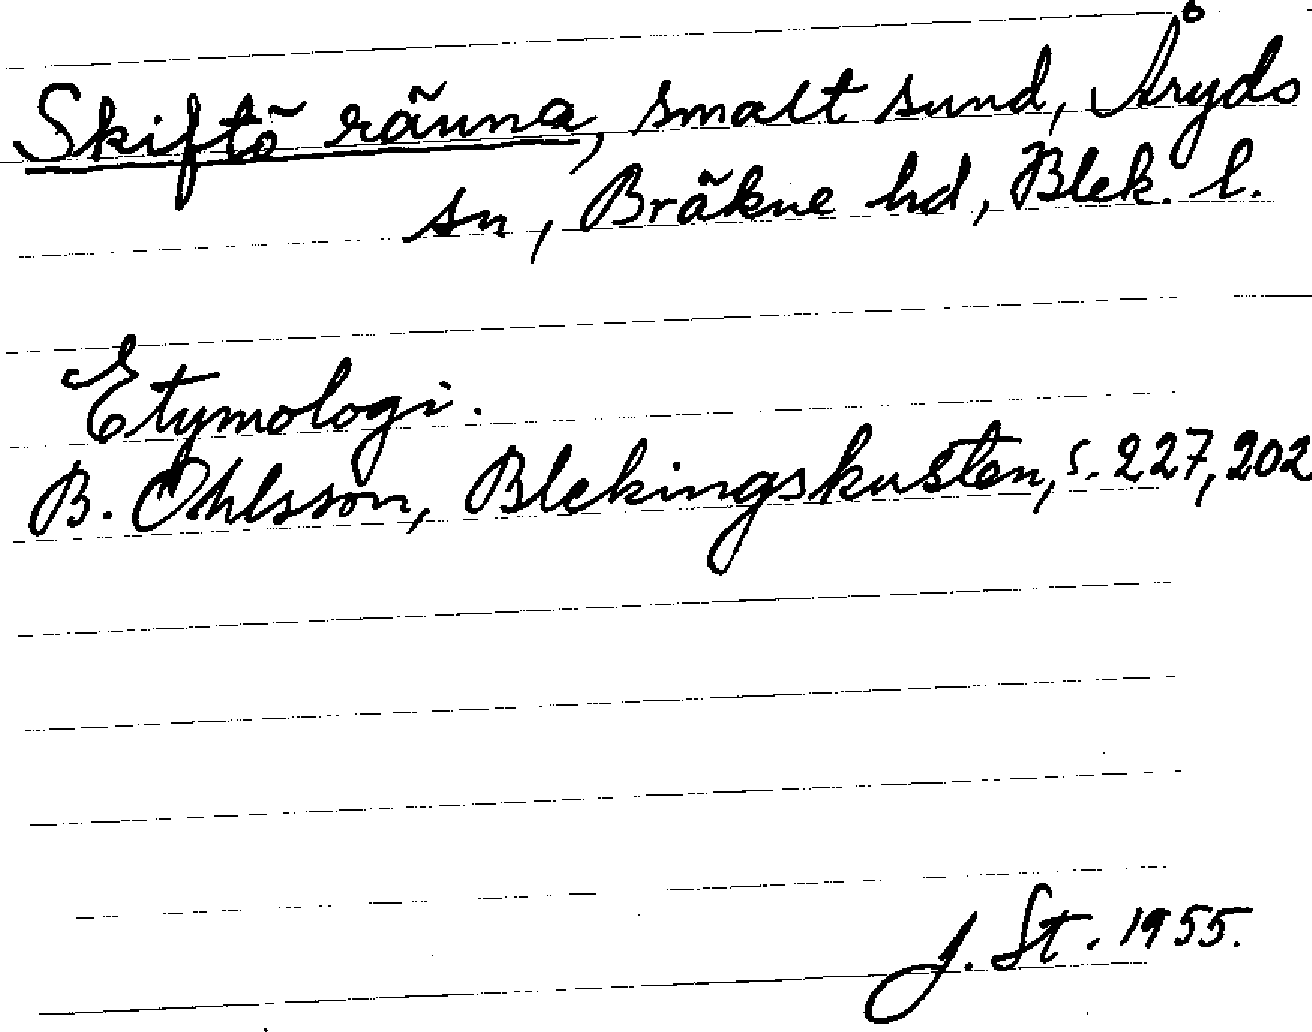 Skiftö ränna, smalt sund, Åryds
sn, Bräkne hd, Blek. l.
Etymologi.
B. Ohlsson, Blekingskusten, s. 227, 202
J. St. 1955.